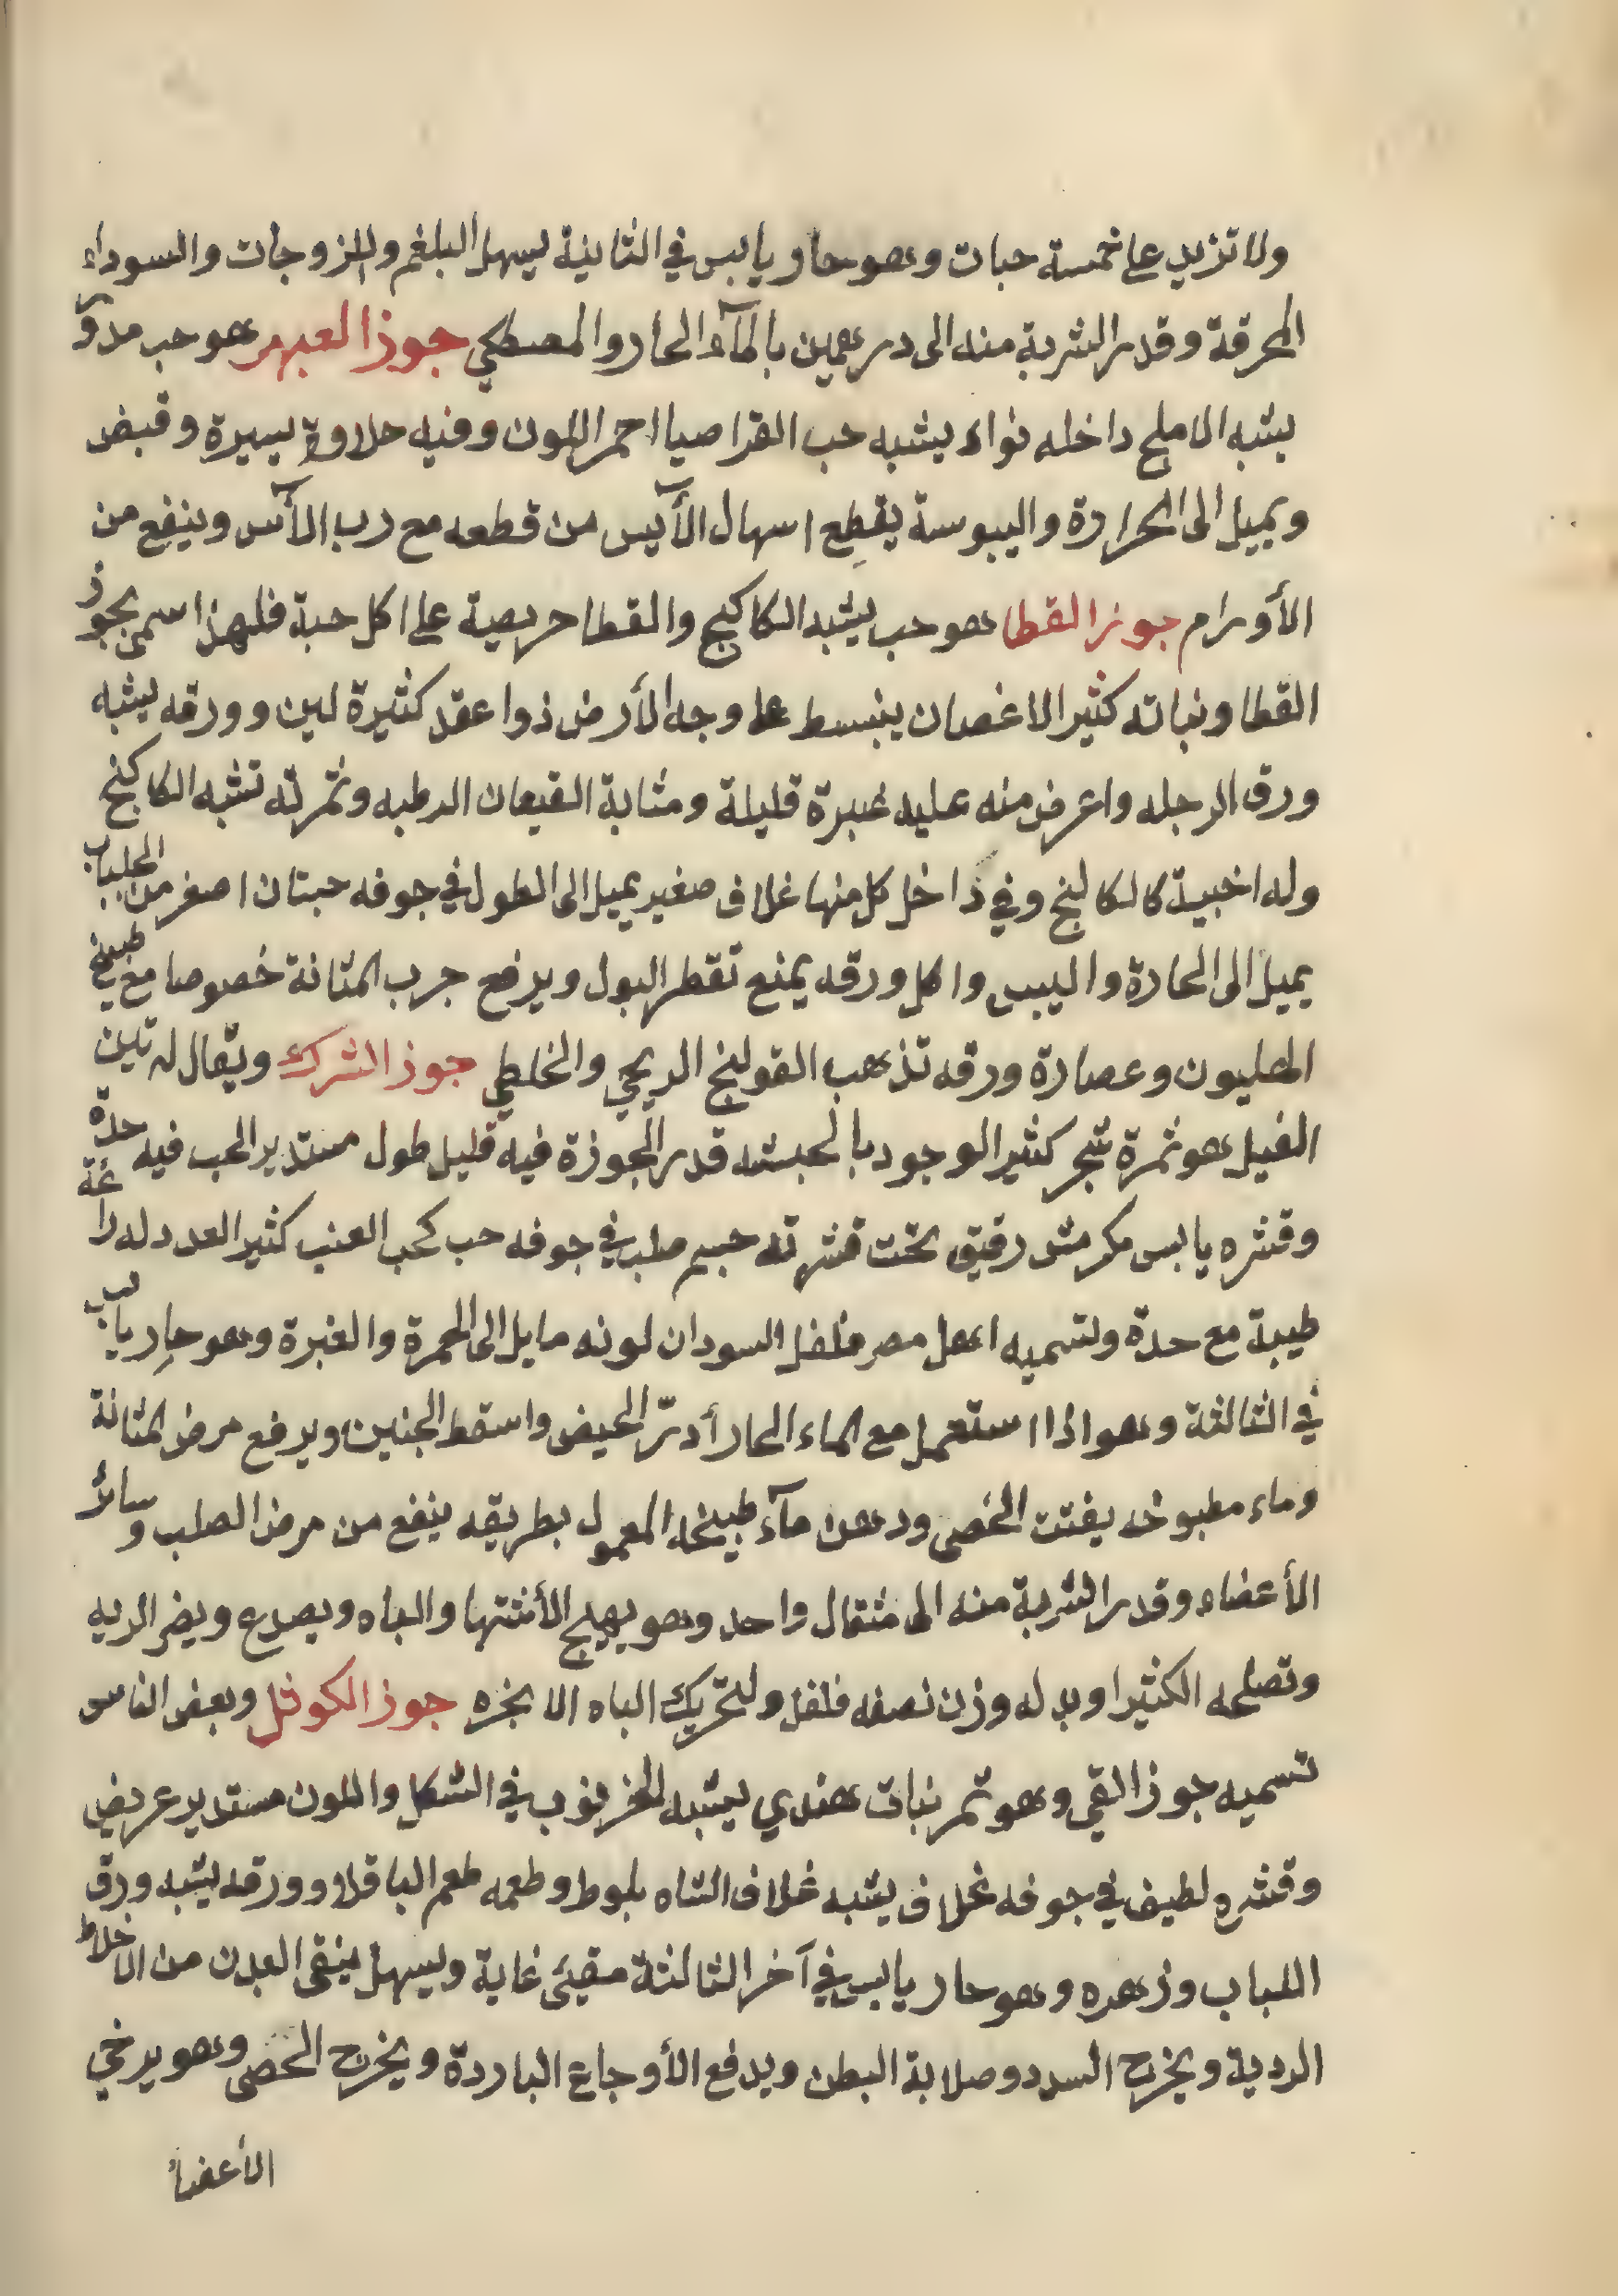 ولا تزيد على خمسة حبات وهو حار يابس في الثانية يسهل البلغم واللزوجات والسوداء
المحرقة وقدر الشربة منه الى درهمين بالمآء الحار والمصطكي جوز العبهر هو حب مدوّر
يشبه الاملج داخله نواء يشبه حب القراصيا احمر اللون وفيه حلاوة يسيرة وقبض
ويميل الى الحرارة واليبوسة يقطع اسهال الآيس من قطعه مع رب الآس وينفع من
الأورام جوز القطا هو حب يشبه الكاكنج والقطا حريصة على اكل حبة فلهذا سمى بجوز
القطا ونباته كثير الاغصان ينبسط على وجه الأرض ذوا عقد كثيرة لين وورقه يشبه
ورق الرجله واعرض منه عليه غبرة قليلة ومثابة القيعان الرطبه وثمرته تشبه الكاكنج
وله اخبية كالكاكنج وفي داخل كل منها غلاف صغير يميل الى الطول في جوفه حبتان اصغر من الجلبان
يميل الى الحارة واليبس واكل ورقه يمنع تقطر البول ويرفع جرب المثانة خصوصا مع طبيخ
الهليون وعصارة ورقه تذهب القولنج الريحي والخلطي جوز الشرك ويقال له تين
الفيل هو ثمرة شجر كثير الوجود بالحبشه قدر الجوزة فيه قليل طول مستدير الحب فيه حدّة
وقشره يابس مكرمش رقيق تحت قشرته جسم صلب في جوفه حب كحب العنب كثير العدد له رائحة
طيبة مع حدة وتسميه اهل مصر فلفل السودان لونه مايل الى الحمرة والغبرة وهو حار يابس
في الثالثة وهو اذا استعمل مع الماء الحار أدرّ الحيض واسقط الجنين ويرفع مرض المثانة
وماء مطبوخه يفتت الخصى ودهن مآء طبيخه المعمول بطريقه ينفع من مرض الصلب وسائر
الأعضاء وقدر الشربة منه الى مثقال واحد وهو يهيج الأشتها والباه ويصدع ويضر الريه
وتصلحه الكثيرا وبدله وزن نصفه فلفل ولتحريك الباه الانجره جوز الكوثل وبعض الناس
تسميه جوز القي وهو ثمر نبات هندي يشبه الخرنوب في الشكل واللون مستدير عريض
وقشره لطيف في جوفه غلاف يشبه غلاف الشاه بلوط وطعمه طعم الباقلا وورقه يشبه ورق
اللباب وزهره وهو حار يابس في آخر الثالثة مقيئ غاية ويسهل ينقى البدن من الاخلاط
الردية ويخرج السدد وصلابة البطن ويدفع الأوجاع الباردة ويخرج الخصى وهو يرخي
الأعضاء